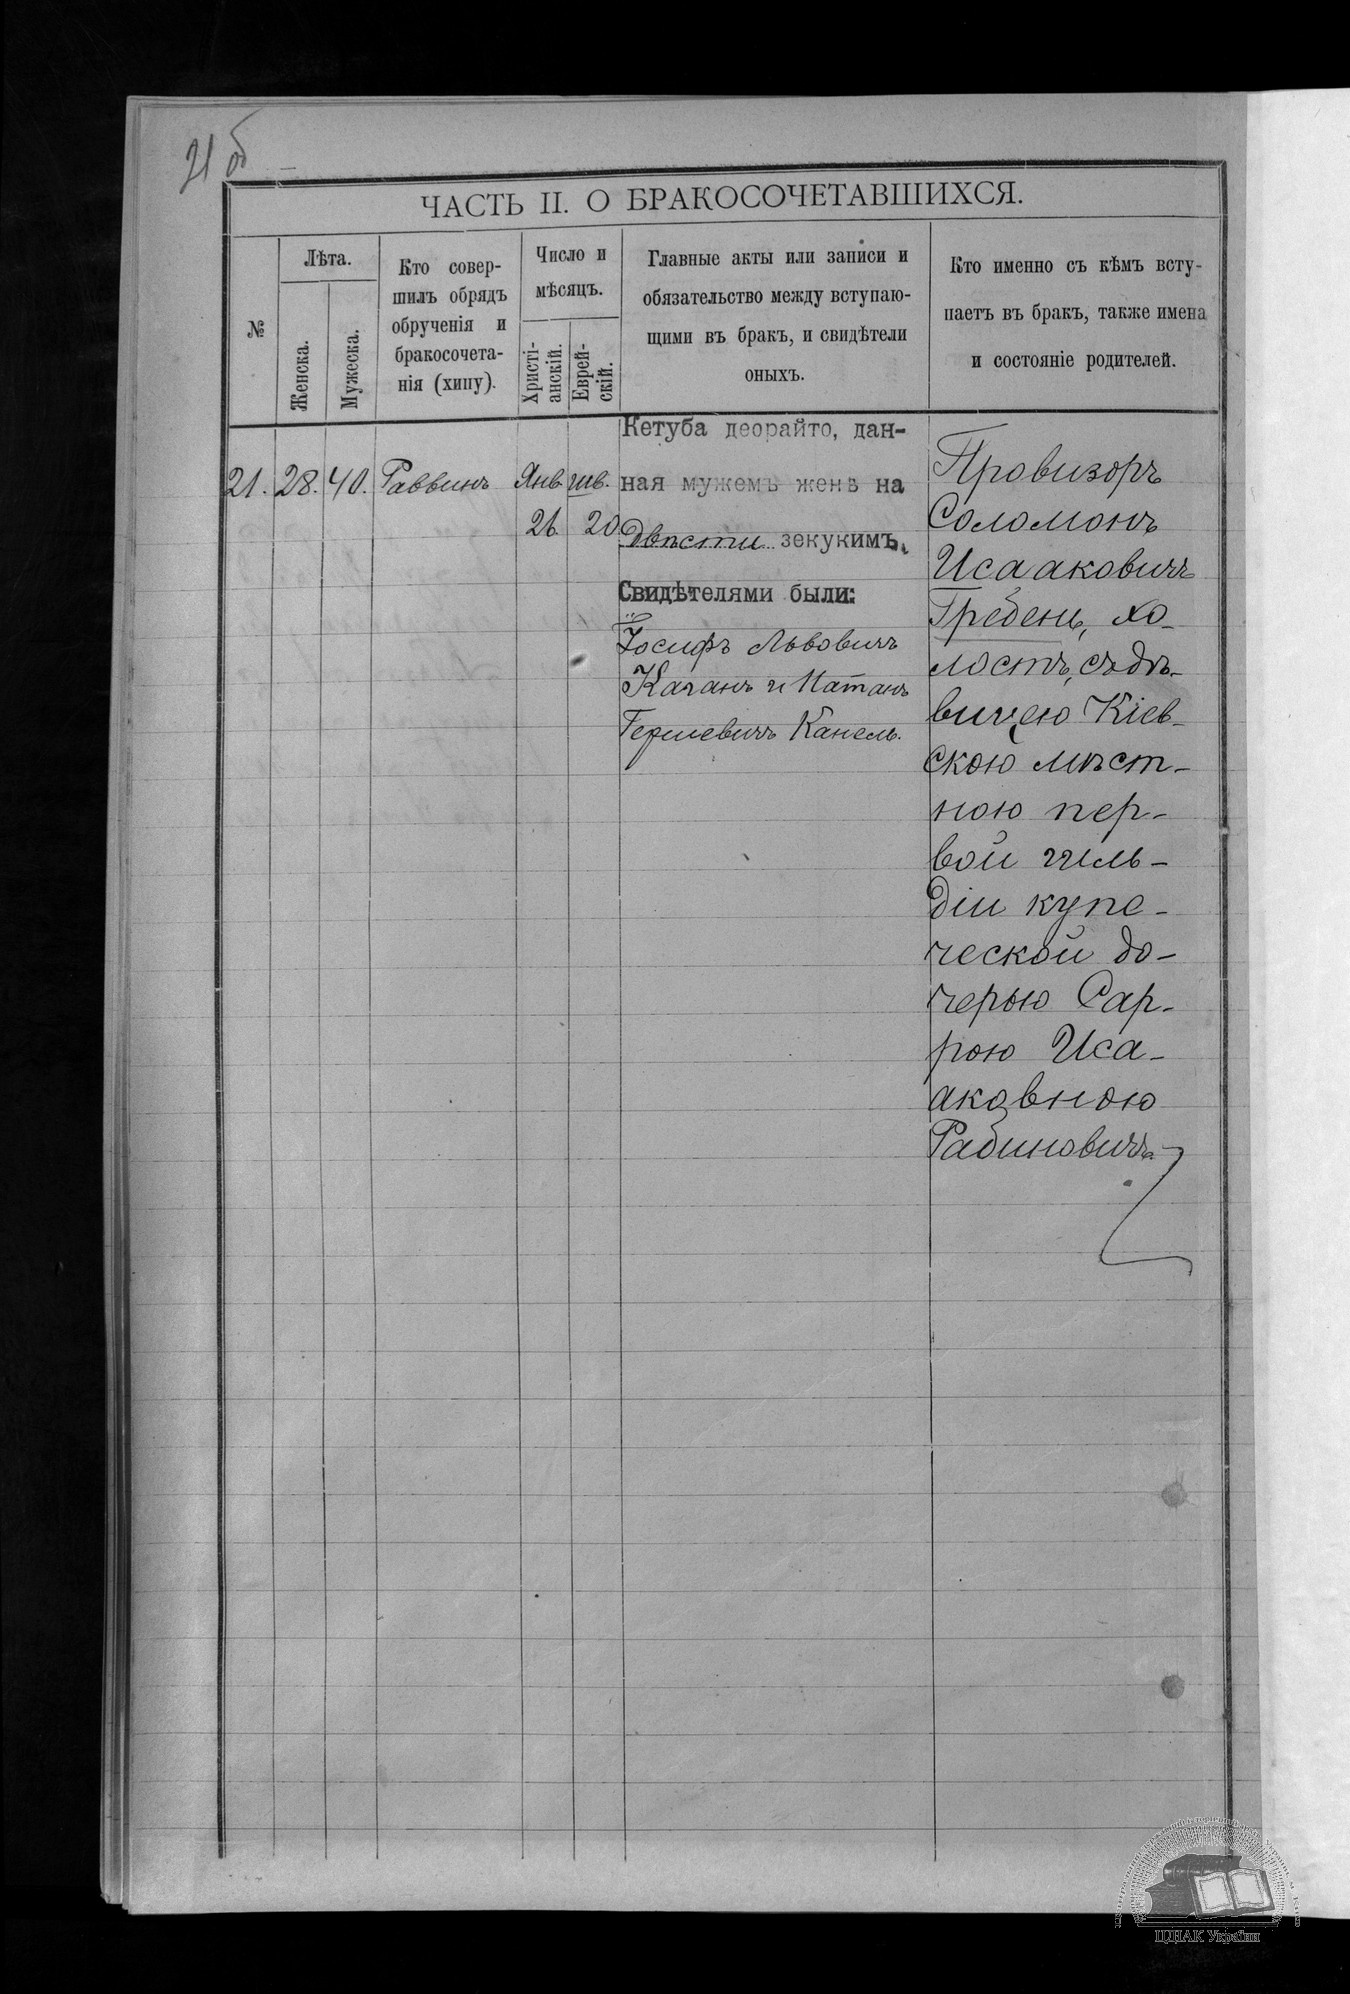 21 об
ЧАСТЬ II. О БРАКОСОЧЕТАВШИХСЯ.
№
Лѣта.
Женска.
Мужеска.
Кто совер-
шилъ обрядъ
обрученія и
бракосочета-
нія (хипу).
Число и
мѣсяцъ.
Христі-
анскій.
Еврей-
скій.
Главные акты или записи и
обязательство между вступаю-
щими въ бракъ, и свидѣтели
оныхъ.
Кто именно съ кѣмъ всту-
паетъ въ бракъ, также имена
и состояніе родителей.
21. 28. 40. Раввинъ
Янв. шв.
26. 20
Кетуба деорайто, дан-
ная мужемъ женѣ на
Двѣсти зекукимъ.
Свидѣтелями были:
Іосифъ Львовичъ
Каганъ и Натанъ
Гершевичъ Канель.
Провизоръ
Соломонъ
Исааковичъ
Гребень, хо-
лостъ, съ дѣ-
вицею Кіев-
скою мѣст-
ною пер-
вой гиль-
діи купе-
ческой до-
черью Сар-
рою Иса-
аковною
Рабиновичъ
ЦДІАК України